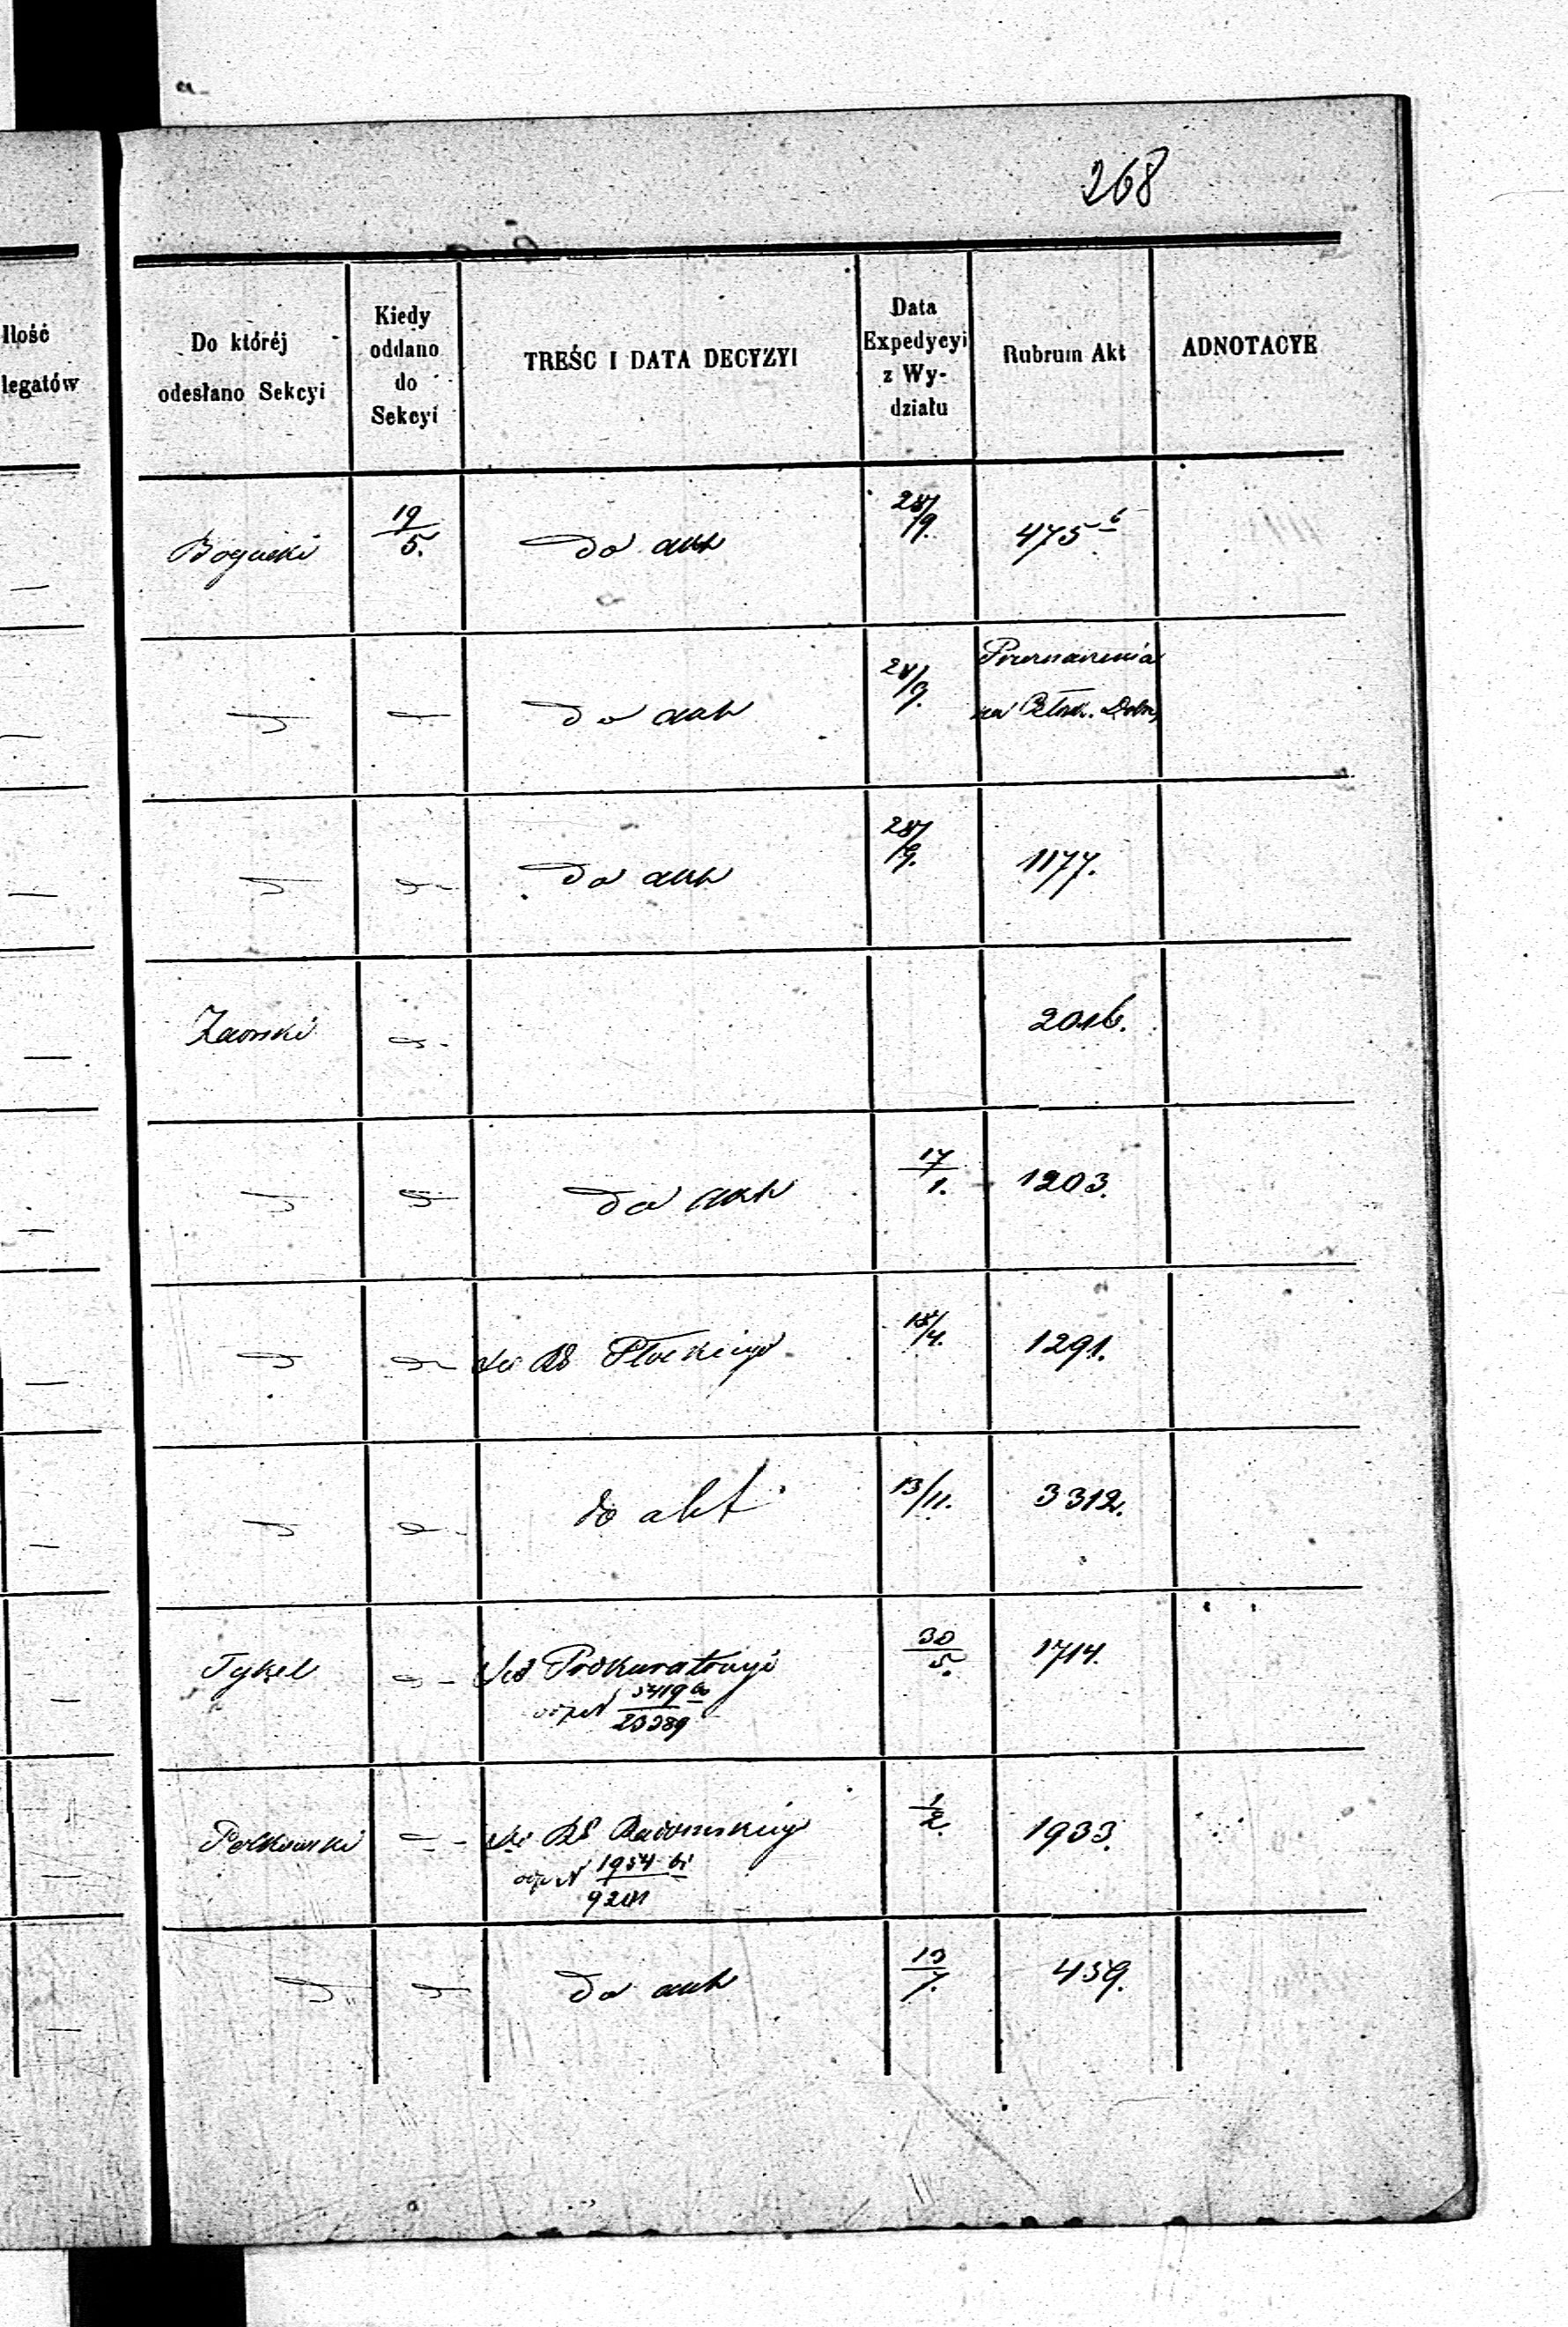 268
Ilość
legatów
Do któréj
odesłano Sekcyi
Kiedy
oddano
do
Sekcyi
TREŚC I DATA DECYZYI
Data
Expedycyi
z Wy-
działu
Rubrum Akt
ADNOTACYE
Bogucki 19/5. do akt 28/9. 475 b
do akt 28/9.
do akt 28/9. 1177.
Zaorski 2016.
do akt 17/1. 1203.
do RG Płockiego 18/4. 1291.
do akt 13/11. 3312.
Tykel do Prokuratoryi 30/5. 1714.
23389
Polkowski do RG Radomskiego 1/2. 1933.
do akt 13/7. 459.